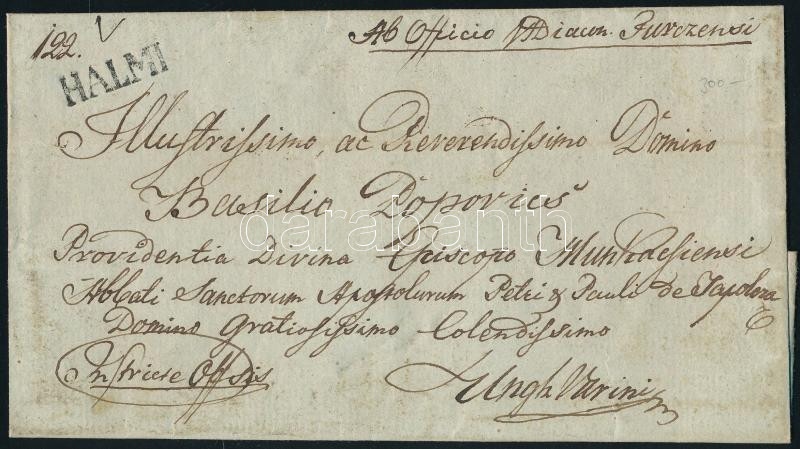 122.
Ab Officio VADiacon. Turczensi
HALMI
300-
Illustrissimo, ac Reverendissimo Domino
Basilio Popovics
Providentia Divina Episcopo Munkacsiensi
Abbati Sanctorum Apostolurum Petri & Pauli de Tapolcza
Domino Gratiosissimo Colendissimo
Ungh Varini
darabanth